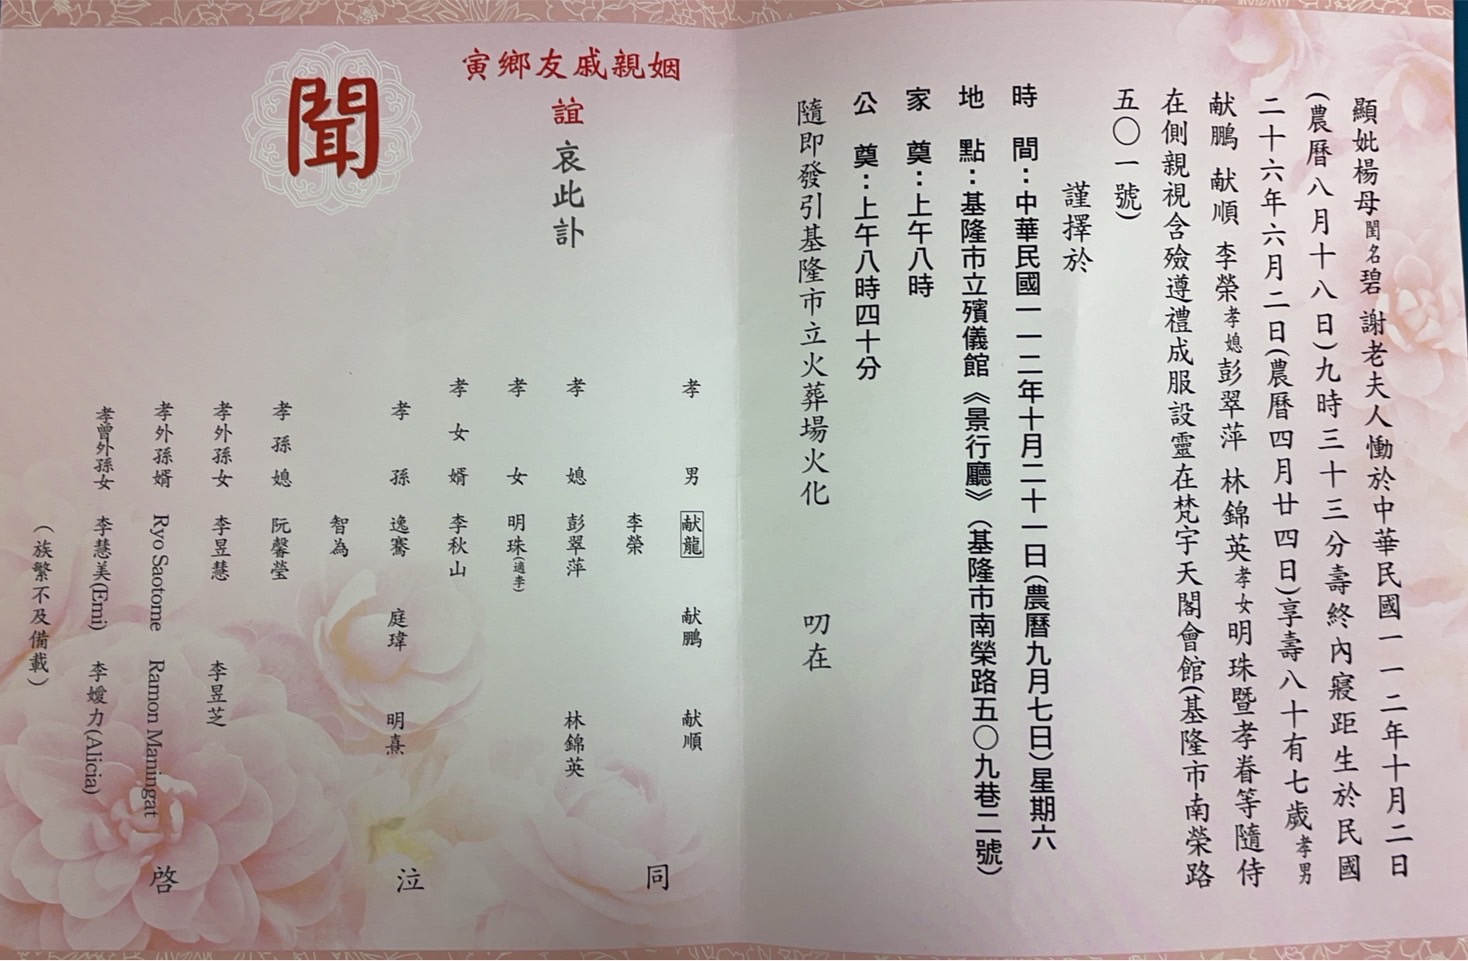 顯妣楊母閨名碧 謝老夫人慟於中華民國一一二年十月二日
(農曆八月十八日)九時三十三分壽終內寢距生於民國
二十六年六月二日(農曆四月廿四日)享壽八十有七歲孝男
献鵬 献順 李榮孝媳彭翠萍 林錦英孝女明珠暨孝眷等隨侍
在側親視含殮遵禮成服設靈在梵宇天閣會館(基隆市南榮路
五〇一號)
謹擇於
時 間:中華民國一一二年十月二十一日(農曆九月七日)星期六
地 點:基隆市立殯儀館《景行廳》(基隆市南榮路五〇九巷二號)
家 奠:上午八時
公 奠:上午八時四十分
隨即發引基隆市立火葬場火化 叨在
寅鄉友戚親姻
誼哀此訃
聞
孝男 献龍 献鵬 献順
李榮
孝媳 彭翠萍 林錦英
孝女 明珠(適李)
孝女婿 李秋山
孝孫 逸騫 庭瑋 明熹
智為
孝孫媳 阮馨瑩
孝外孫女 李昱慧 李昱芝
孝外孫婿 Ryo Saotome Ramon Maningat
孝曾外孫女 李慧美(Emi) 李嫒力(Alicia)
(族繁不及備載)
同 泣 啓